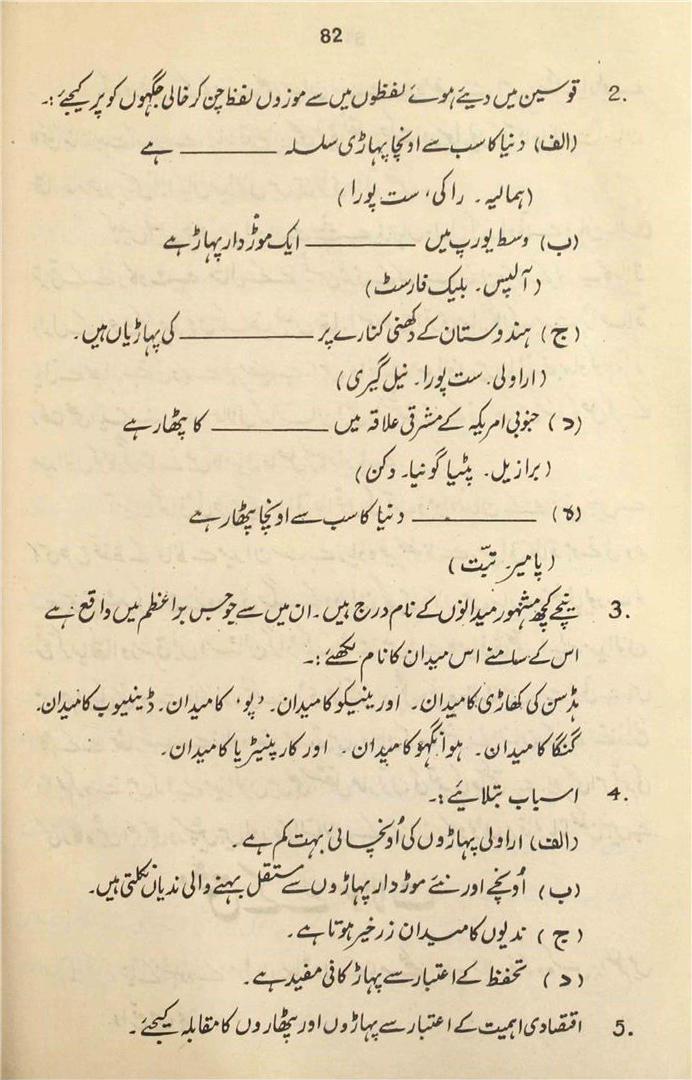 82
2. قوسین میں دیئے ہوئے لفظوں میں سے موزوں لفظ چن کر خالی جگہوں کو پر کیجئے :۔
(الف) دنیا کا سب سے اونچا پہاڑی سلسلہ ــــــــــ ہے
(ہمالیہ۔ راکی، ست پورا)
(ب) وسط یورپ میں ــــــــــ ایک موڑدار پہاڑ ہے
(آلپس۔ بلیک فارسٹ)
(ج) ہندوستان کے دکھنی کنارے پر ــــــــــ کی پہاڑیاں ہیں۔
(اراولی۔ ست پورا۔ نیل گیری)
(د) جنوبی امریکہ کے مشرقی علاقہ میں ــــــــــ کا پٹھار ہے
(برازیل۔ پٹیاگونیا۔ دکن)
(ہ) ــــــــــ دنیا کا سب سے اونچا پٹھار ہے
(پامیر۔ تبّت)
3. نیچے کچھ مشہور میدانوں کے نام درج ہیں۔ ان میں سے جو جس براعظم میں واقع ہے
اس کے سامنے اس میدان کا نام لکھئے :۔
ہڈسن کی کھاڑی کا میدان۔ اورینیکو کا میدان۔ 'پو' کا میدان۔ ڈینیوب کا میدان۔
گنگا کا میدان۔ ہوانگہو کا میدان۔ اور کارپنیٹریا کا میدان۔
4. اسباب بتلائیے :۔
(الف) اراولی پہاڑوں کی اُونچائی بہت کم ہے۔
(ب) اُونچے اور نئے موڑدار پہاڑوں سے مستقل بہنے والی ندیاں نکلتی ہیں۔
(ج) ندیوں کا میدان زرخیز ہوتا ہے۔
(د) تحفظ کے اعتبار سے پہاڑ کافی مفید ہے۔
5. اقتصادی اہمیت کے اعتبار سے پہاڑوں اور پٹھاروں کا مقابلہ کیجئے۔